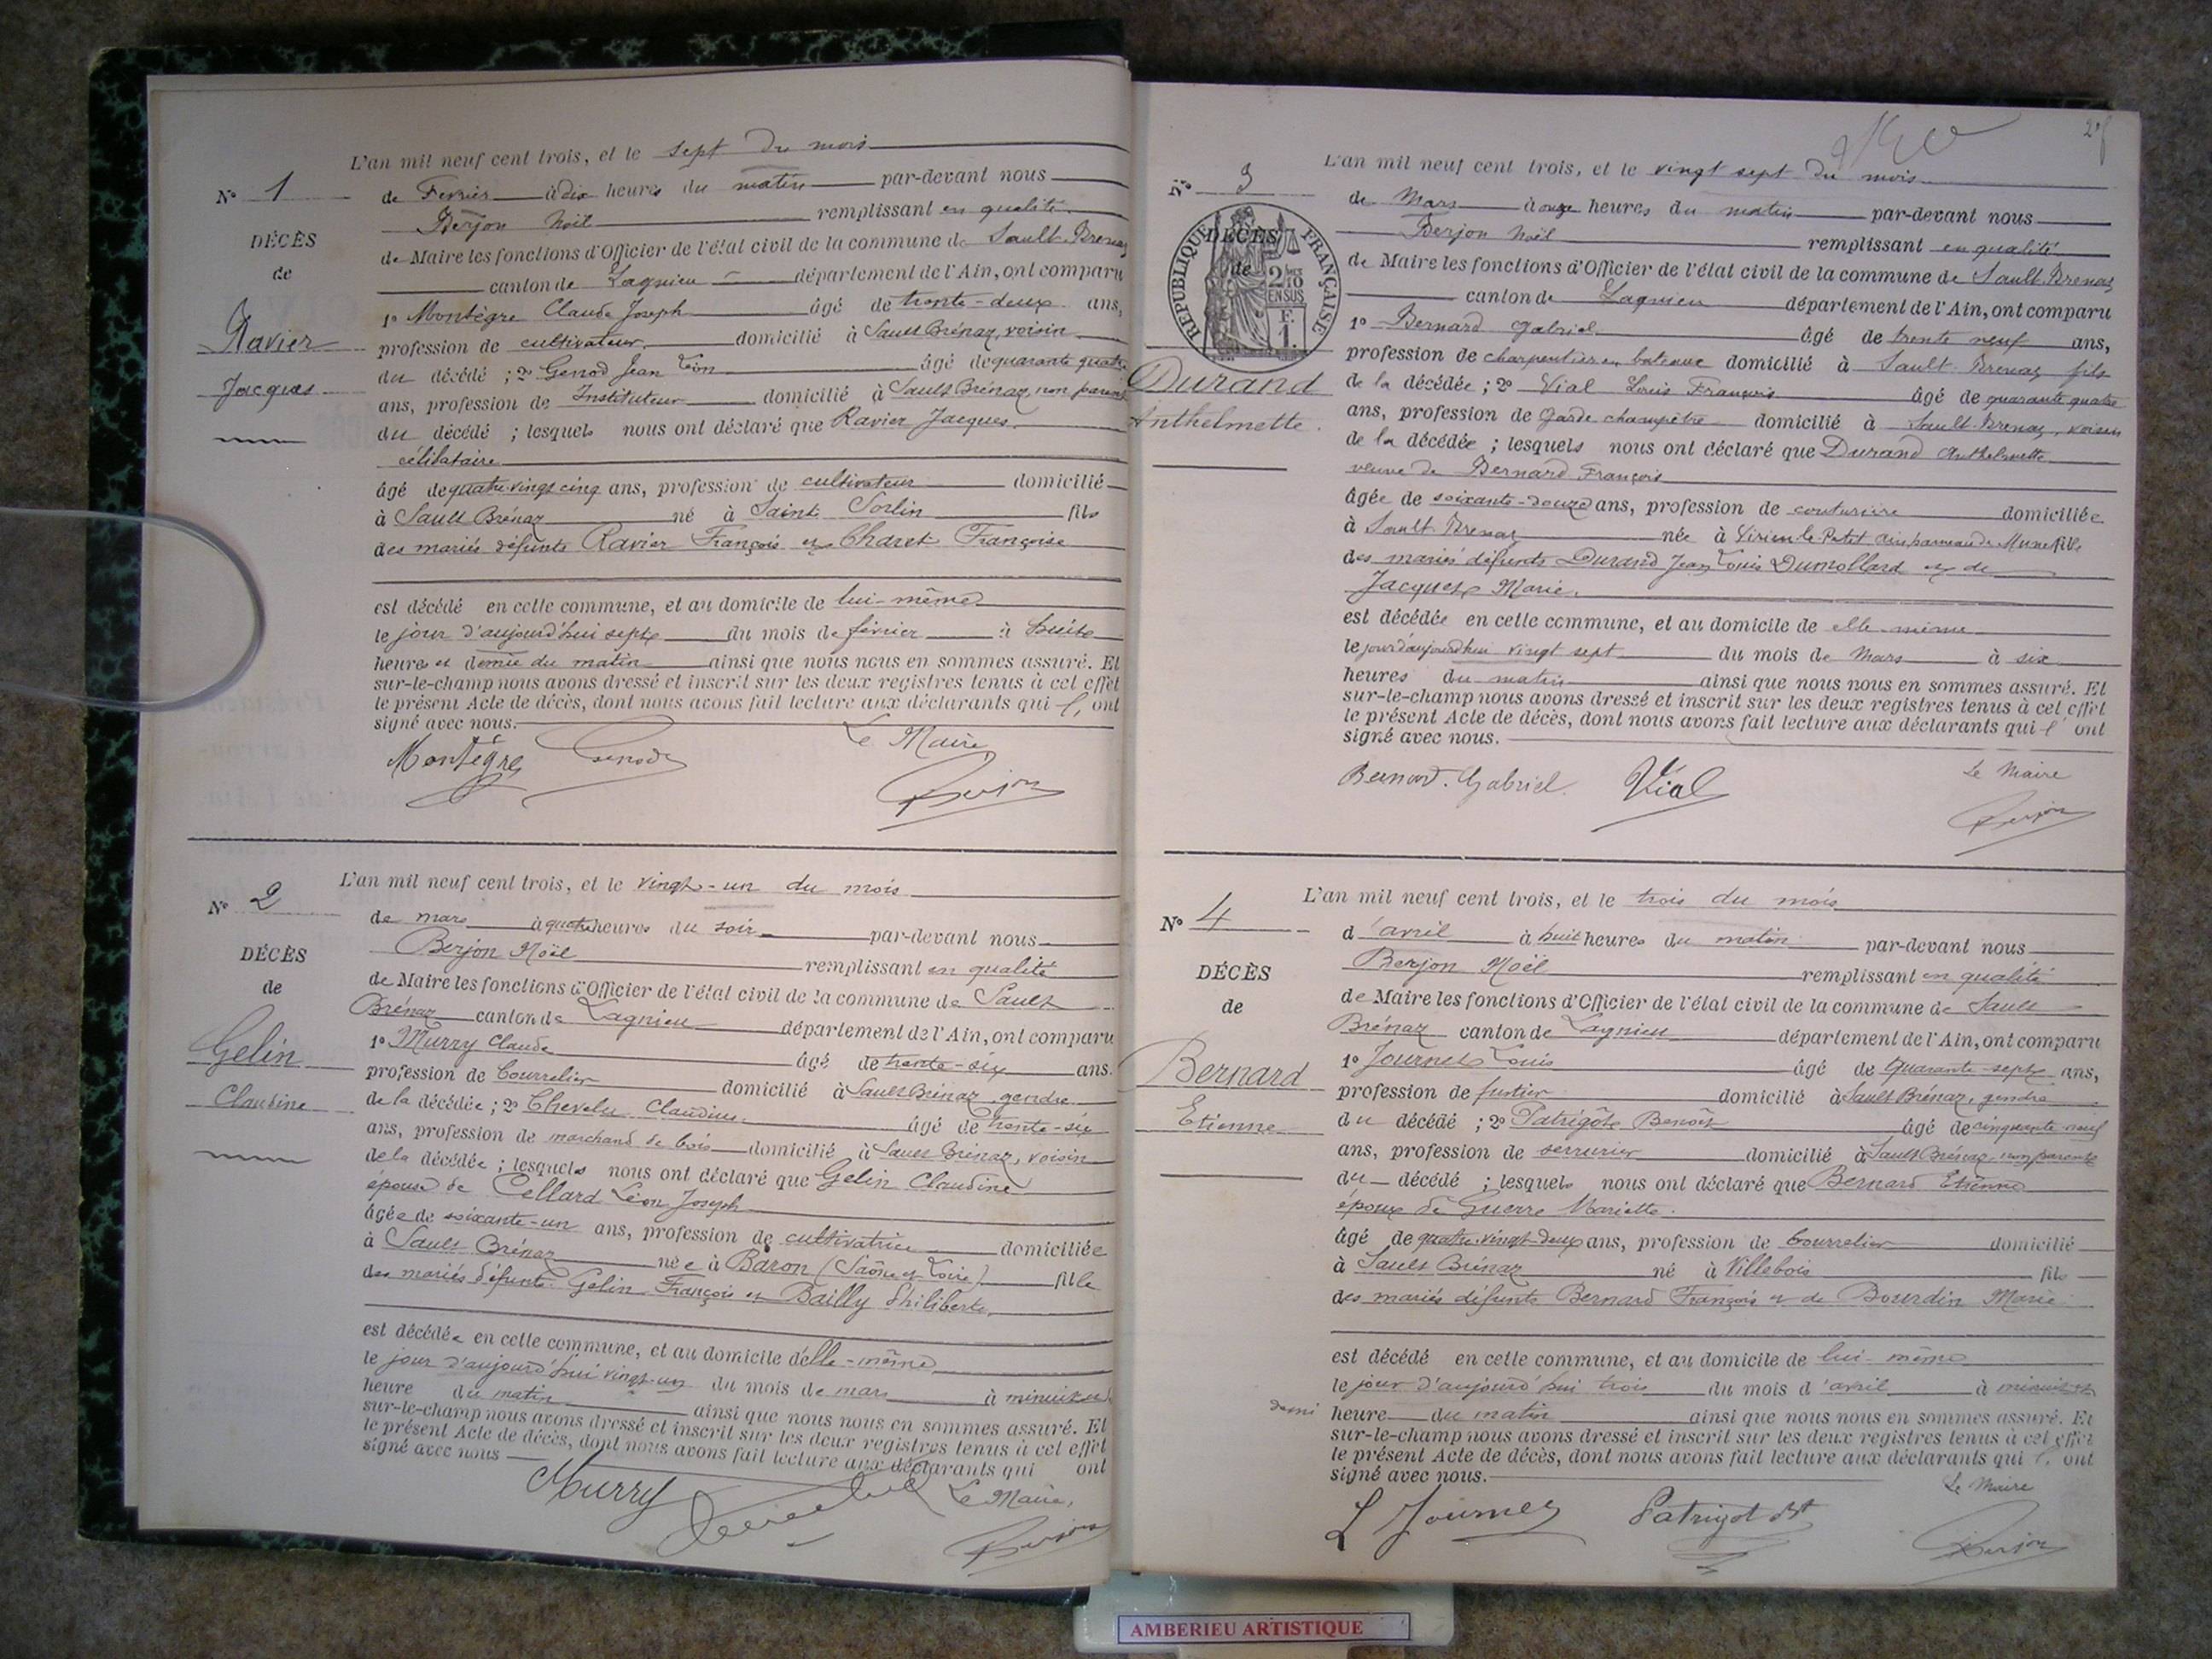 L'an mil neuf cent trois, et le sept du mois
N° 1
de Fevrier à dix heures du matin par-devant nous
Berjon Noël remplissant en qualité
DÉCÈS
de Maire les fonctions d'Officier de l'état civil de la commune de Sault-Brenaz
de
canton de Lagnieu département de l'Ain, ont comparu
1° Montègre Claude Joseph âgé de trente-deux ans,
Ravier
profession de cultivateur domicilié à Sault Brénaz, voisin
du décédé ; 2° Genod Jean Léon âgé de quarante quatre
Jacques
ans, profession de Instituteur domicilié à Sault Brénaz, non parent
du décédé ; lesquels nous ont déclaré que Ravier Jacques
célibataire
âgé de quatre-vingt cinq ans, profession de cultivateur domicilié
à Sault Brénaz né à Saint Sorlin fils
des mariés défunts Ravier François et Charet Françoise
est décédé en cette commune, et au domicile de lui-même
le jour d'aujourd'hui sept du mois de février à huit
heures et demie du matin ainsi que nous nous en sommes assuré. Et
sur-le-champ nous avons dressé et inscrit sur les deux registres tenus à cet effet
le présent Acte de décès, dont nous avons fait lecture aux déclarants qui l'ont
signé avec nous.
Le Maire
Montègre Genod
Berjon
L'an mil neuf cent trois, et le vingt-un du mois
N° 2
de mars à quatre heures du soir par-devant nous
Berjon Noël remplissant en qualité
DÉCÈS
de Maire les fonctions d'Officier de l'état civil de la commune de Sault
de
Brénaz canton de Lagnieu département de l'Ain, ont comparu
1° Murry Claude âgé de trente-six ans.
Gelin
profession de Bourrelier domicilié à Sault Brénaz, gendre
Claudine
de la décédée ; 2° Chevelu Claudius âgé de trente-six
ans, profession de marchand de bois domicilié à Sault Brénaz, voisin
de la décédée ; lesquels nous ont déclaré que Gelin Claudine
épouse de Cellard Léon Joseph
âgée de soixante-un ans, profession de cultivatrice domiciliée
à Sault Brénaz née à Baron (Saône et Loire) fille
des mariés défunts Gelin François et Bailly Philiberte
est décédée en cette commune, et au domicile d'elle-même
le jour d'aujourd'hui vingt-un du mois de mars à minuit
heure du matin ainsi que nous nous en sommes assuré. Et
sur-le-champ nous avons dressé et inscrit sur les deux registres tenus à cet effet
le présent Acte de décès, dont nous avons fait lecture aux déclarants qui ont
signé avec nous
Murry
Le Maire,
Berjon
L'an mil neuf cent trois, et le vingt sept du mois
N° 3
de Mars à onze heures du matin par-devant nous
Berjon Noël remplissant en qualité
RÉPUBLIQUE FRANÇAISE
DÉCÈS
de
2/10 EN SUS
F. 1.
de Maire les fonctions d'Officier de l'état civil de la commune de Sault-Brenaz
canton de Lagnieu département de l'Ain, ont comparu
1° Bernard Gabriel âgé de trente neuf ans,
profession de charpentier en bateaux domicilié à Sault-Brenaz fils
Durand
de la décédée ; 2° Vial Louis François âgé de quarante quatre
Anthelmette
ans, profession de Garde champêtre domicilié à Sault-Brenaz, voisin
de la décédée ; lesquels nous ont déclaré que Durand Anthelmette
veuve de Bernard François
âgée de soixante-douze ans, profession de couturière domiciliée
à Sault Brenaz née à fille
des mariés défunts Durand Jean Louis Dumollard et de
Jacquet Marie
est décédée en cette commune, et au domicile de elle-même
le jour d'aujourd'hui vingt sept du mois de Mars à six
heures du matin ainsi que nous nous en sommes assuré. Et
sur-le-champ nous avons dressé et inscrit sur les deux registres tenus à cet effet
le présent Acte de décès, dont nous avons fait lecture aux déclarants qui l'ont
signé avec nous.
Le Maire
Bernard Gabriel Vial
Berjon
L'an mil neuf cent trois, et le trois du mois
N° 4
d'avril à huit heures du matin par-devant nous
Berjon Noël remplissant en qualité
DÉCÈS
de Maire les fonctions d'Officier de l'état civil de la commune de Sault
de
Brénaz canton de Lagnieu département de l'Ain, ont comparu
1° Journet Louis âgé de Quarante-sept ans,
Bernard
profession de fustier domicilié à Sault Brénaz, gendre
Etienne
du décédé ; 2° Patrigot Benoît âgé de cinquante-neuf
ans, profession de serrurier domicilié à Sault Brénaz, non parents
du décédé ; lesquels nous ont déclaré que Bernard Etienne
époux de Guerre Mariette
âgé de quatre-vingt-deux ans, profession de Bourrelier domicilié
à Sault Brénaz né à Villebois fils
des mariés défunts Bernard François et de Bourdin Marie
est décédé en cette commune, et au domicile de lui-même
le jour d'aujourd'hui trois du mois d'avril à minuit et
demi heure du matin ainsi que nous nous en sommes assuré. Et
sur-le-champ nous avons dressé et inscrit sur les deux registres tenus à cet effet
le présent Acte de décès, dont nous avons fait lecture aux déclarants qui l'ont
signé avec nous.
Le Maire
L Journet Patrigot Bt
Berjon
AMBERIEU ARTISTIQUE